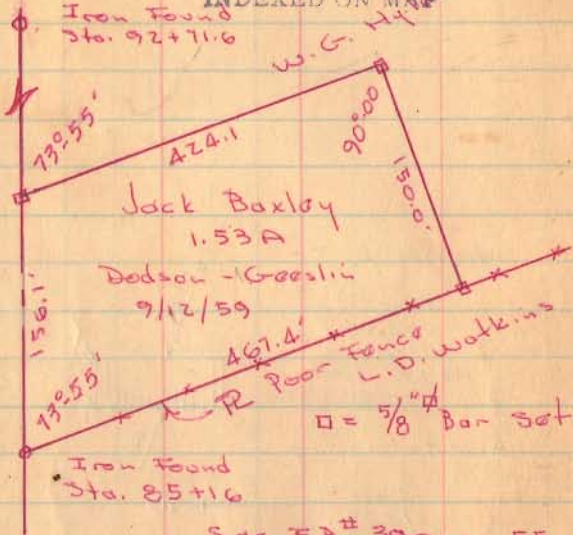 INDEXED ON MAP
Iron Found
Sta. 92+71.6
W.G. Hy
73°55'
424.1
90°00
150.0'
Jack Baxley
1.53 A
Dodson - Geeslin
9/12/59
156.1'
467.4'
73°55'
PL Poor Fence
L.D. Watkins
□ = 5/8" Bar Set
Iron Found
Sta. 85+16